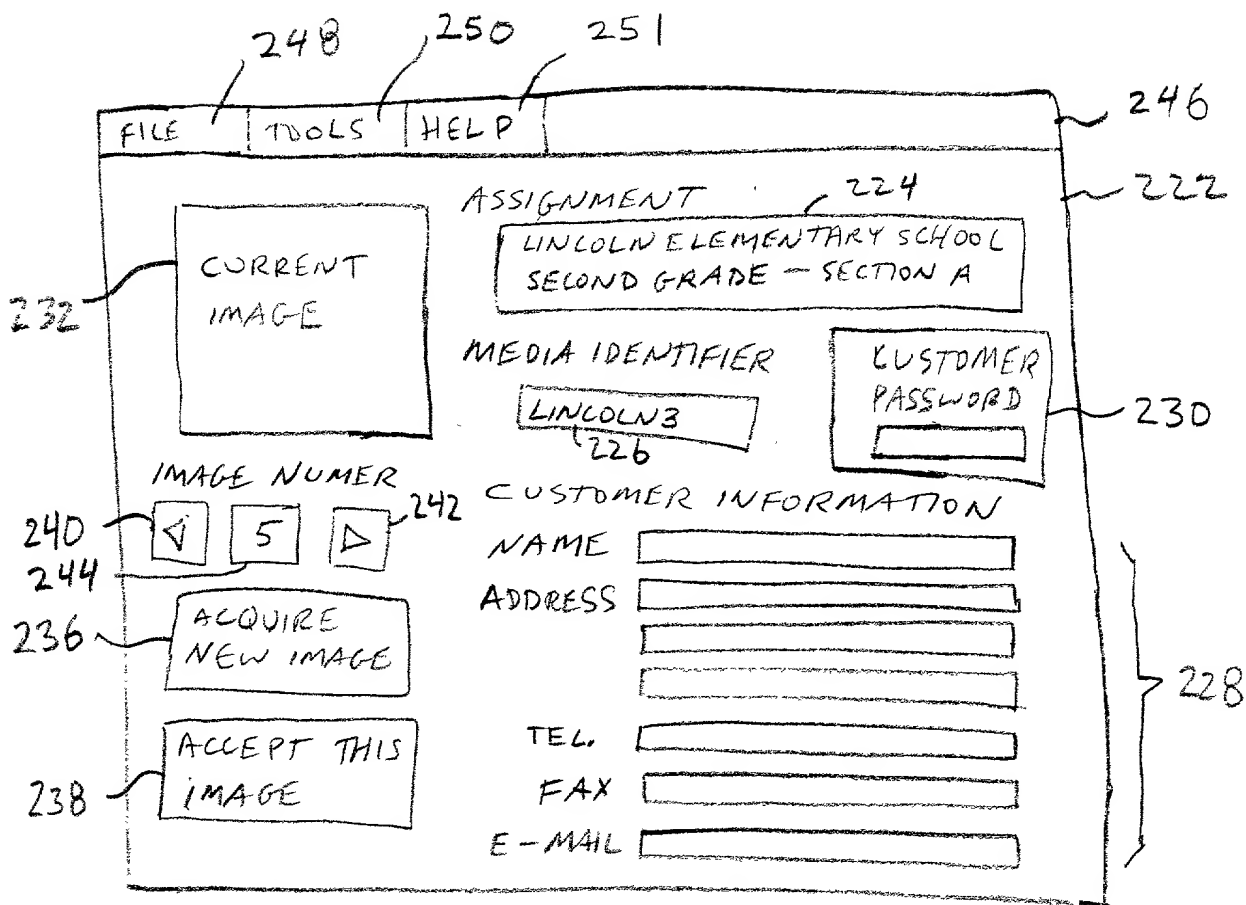 248 250 251
FILE TOOLS HELP 246
222
ASSIGNMENT 224
LINCOLN ELEMENTARY SCHOOL
SECOND GRADE — SECTION A
CURRENT
IMAGE
232
MEDIA IDENTIFIER
LINCOLN3
226
CUSTOMER
PASSWORD
230
IMAGE NUMER
240 5 242
244
CUSTOMER INFORMATION
NAME
ADDRESS
236 ACQUIRE
NEW IMAGE
228
TEL.
238 ACCEPT THIS
IMAGE
FAX
E-MAIL